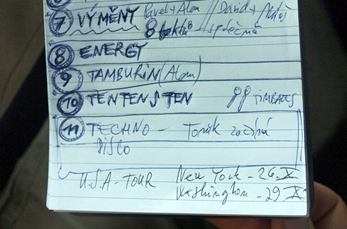 7 VÝMĚNY Pavel + Alan // David +
8 taktů společně
8 ENERGY
9 TAMBURÍN (Alan)
10 TENTENSTEN timbales
11 TECHNO - Tomík začíná
DISCO
U.S.A - TOUR New York - 26. X
Washington - 29 X